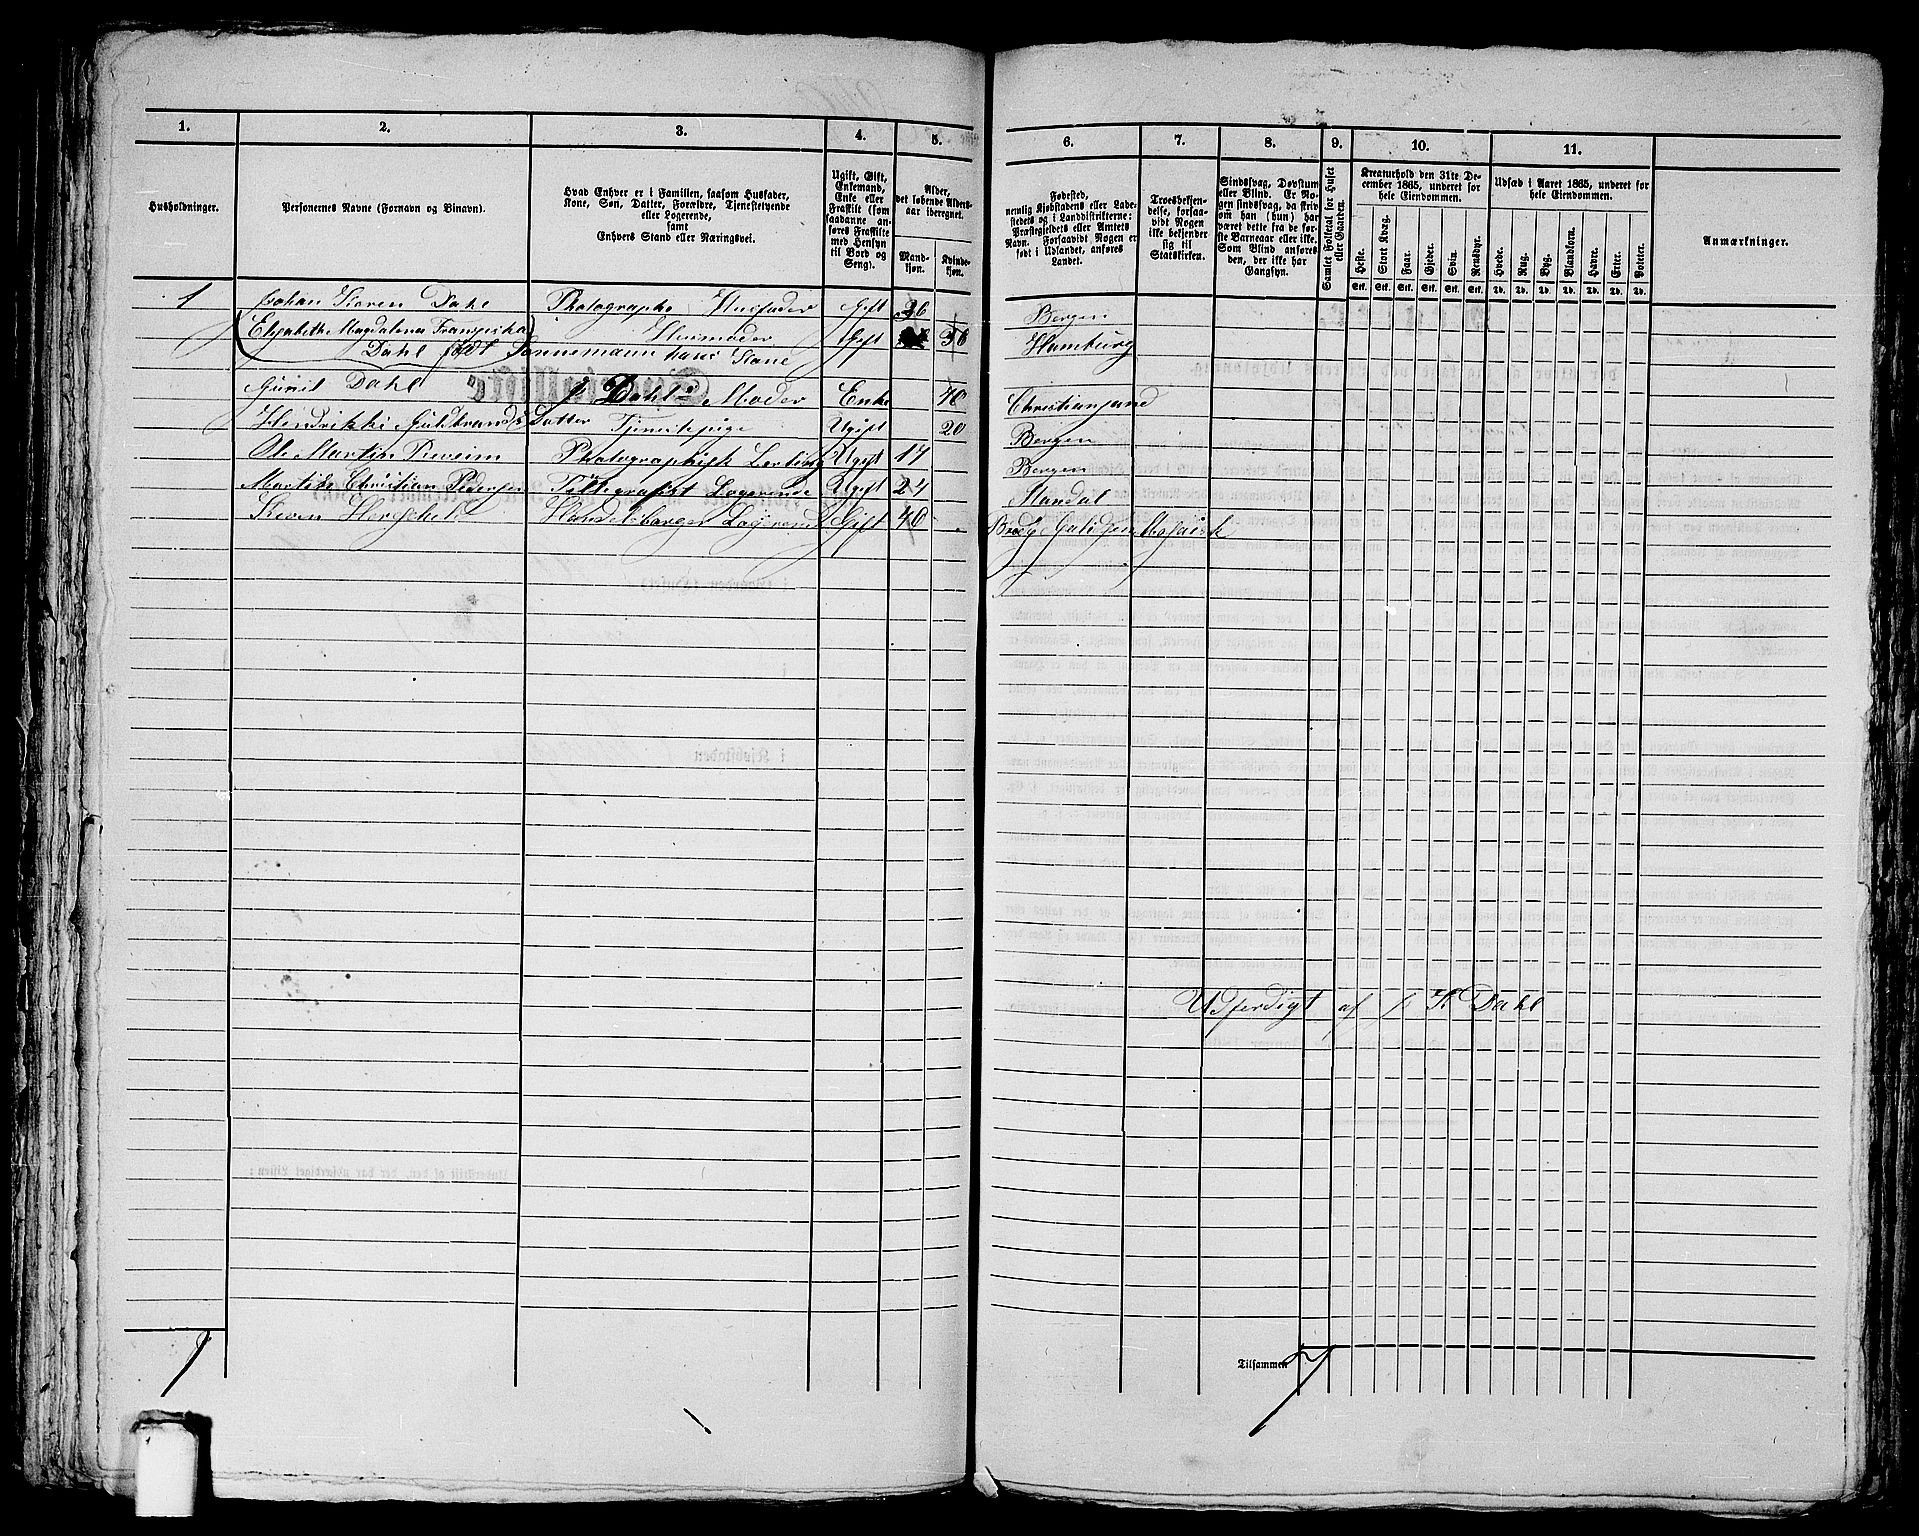 1. 2. 3. 4. 5. 6. 7. 8. 9. 10. 11.
Husholdninger.
Personernes Navne (Fornavn og Binavn).
Hvad Enhver er i Familien, saasom Husfader,
Kone, Søn, Datter, Forældre, Tjenestetyende
eller Logerende,
samt
Enhvers Stand eller Næringsvei.
Ugift, Gift,
Enkemand,
Enke eller
Fraskilt (som
saadanne an-
føres Fraskilte
med Hensyn
til Bord og
Seng).
Alder,
det løbende Alders-
aar iberegnet.
Mand-
kjøn.
Kvinde-
kjøn.
Fødested,
nemlig Kjøbstadens eller Lade-
stedets og i Landdistrikterne:
Præstegjeldets eller Amtets
Navn. Forsaavidt Nogen er
født i Udlandet, anføres
Landet.
Troesbekjen-
delse, forsaa-
vidt Nogen
ikke bekjender
sig til
Statskirken.
Sindssvag, Døvstum
eller Blind. Er No-
gen sindssvag, da skriv
om han (hun) har
været dette fra de før-
ste Barneaar eller ikke.
Som Blind anføres
den, der ikke har
Gangsyn.
Samlet Folketal for Huset
eller Gaarden.
Kreaturhold den 31te De-
cember 1865, underet for
hele Eiendommen.
Heste. Stort Kvæg. Faar. Gjeder. Svin. Rensdyr.
Stk. Stk. Stk. Stk. Stk. Stk.
Udsæd i Aaret 1865, underet for
hele Eiendommen.
Hvede. Rug. Byg. Blandkorn. Havre. Erter. Poteter.
Td. Td. Td. Td. Td. Td. Td.
Anmærkninger.
1 Johan Koren Dahl Photographe Husfader Gift 36 Bergen
Elisabeth Magdalena Franziska Husmoder Gift 36 Hamburg
Dahl født Sonnemann hans Kone
Gunil Dahl J Dahls Moder Enke 70 Christiansund
Hendrikki Guldbrands Datter Tjenestepige Ugift 20 Bergen
Ole Martin Photographisk Lærling Ugift 17 Bergen
Christian Pedersen Logerende Ugift 24 Mandal
Herschel Handelsborger Logerende Gift 40
Udferdigt af J K Dahl
Tilsammen 7